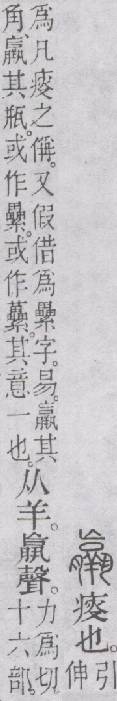 羸瘦也。引
伸
爲凡瘦之偁。又假借爲纍字。易。羸其
角、羸其瓶。或作纍。或作虆。其意一也。
从羊。𣎆聲。力爲切
十六部。